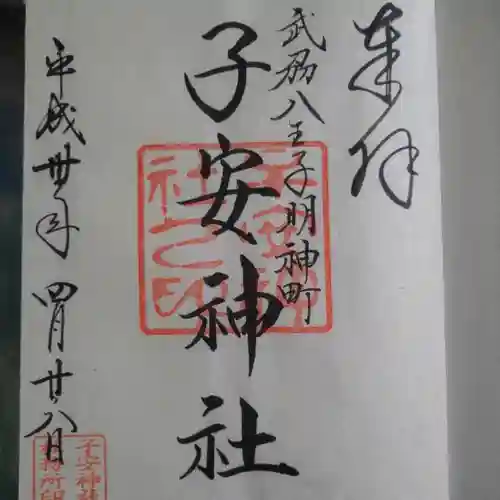 奉拝
武州八王子明神町
子安神社
平成卅年四月廿八日
子安神社